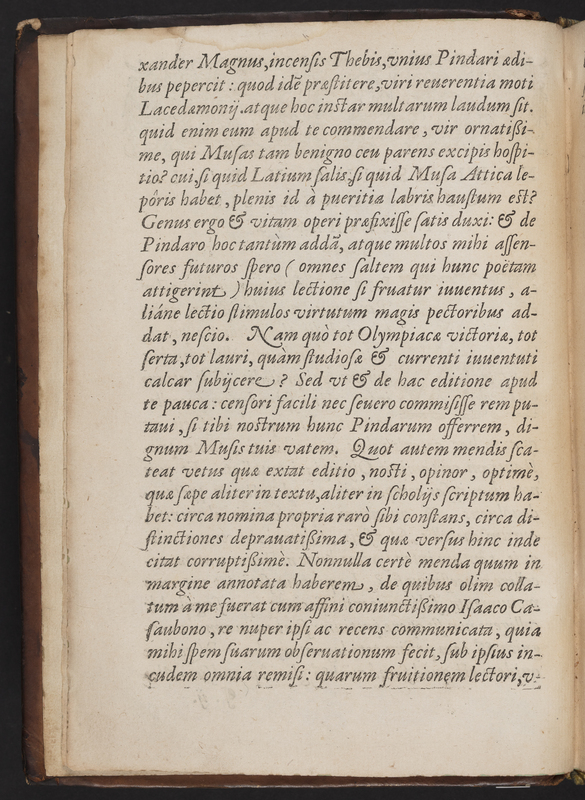 xander Magnus, incensis Thebis, vnius Pindari ædi-
bus pepercit : quod idẽ præstitere, viri reuerentia moti
Lacedæmonij. atque hoc instar multarum laudum sit.
quid enim eum apud te commendare, vir ornatißi-
me, qui Musas tam benigno ceu parens excipis hospi-
tio? cui, si quid Latium salis, si quid Musa Attica le-
pôris habet, plenis id à pueritia labris haustum est?
Genus ergo & vitam operi præfixisse satis duxi: & de
Pindaro hoc tantùm addã, atque multos mihi assen-
sores futuros spero ( omnes saltem qui hunc poëtam
attigerint ) huius lectione si fruatur iuuentus, a-
liáne lectio stimulos virtutum magis pectoribus ad-
dat, nescio. Nam quò tot Olympiacæ victoriæ, tot
serta, tot lauri, quàm studiosæ & currenti iuuentuti
calcar subijcere ? Sed vt & de hac editione apud
te pauca : censori facili nec seuero commisisse rem pu-
taui, si tibi nostrum hunc Pindarum offerrem, di-
gnum Musis tuis vatem. Quot autem mendis sca-
teat vetus quæ extat editio, nosti, opinor, optimè,
quæ sæpe aliter in textu, aliter in scholijs scriptum ha-
bet: circa nomina propria rarò sibi constans, circa di-
stinctiones deprauatißima, & quæ versus hinc inde
citat corruptißimè. Nonnulla certè menda quum in
margine annotata haberem, de quibus olim colla-
tum à me fuerat cum affini coniunctißimo Isaaco Ca-
saubono, re nuper ipsi ac recens communicata, quia
mihi spem suarum obseruationum fecit, sub ipsius in-
cudem omnia remisi : quarum fruitionem lectori, v-